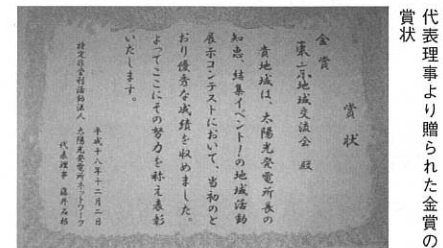 代表理事より贈られた金賞の
賞状
賞状
金賞
東上京地域交流会 殿
貴地域は、太陽光発電所長の
知恵、結集イベント!の地域活動
展示コンテストにおいて、当初のと
おり優秀な成績を収めました。
よってここにその努力を称え表彰
いたします。
平成十八年十二月二日
特定非営利活動法人 太陽光発電所ネットワーク
代表理事 藤井石根